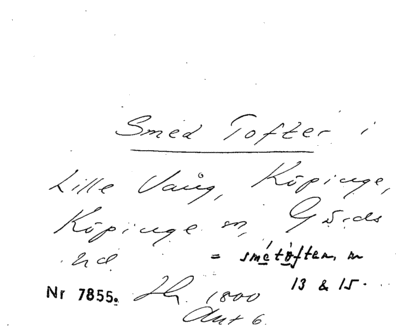 Smed Tofter i
Lille Vång, Köpinge,
Köpinge sn, Gärds
hd. = smetoften, n
Nr 7855. 13 & 15.
1800
Akt 6